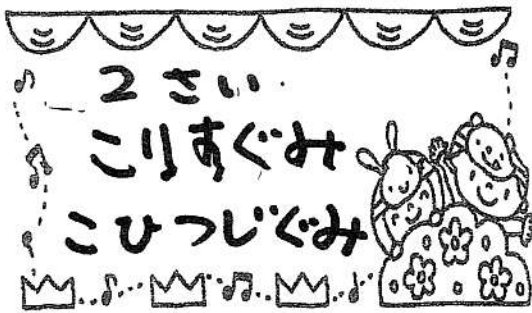 2さい
こりすぐみ
こひつじぐみ